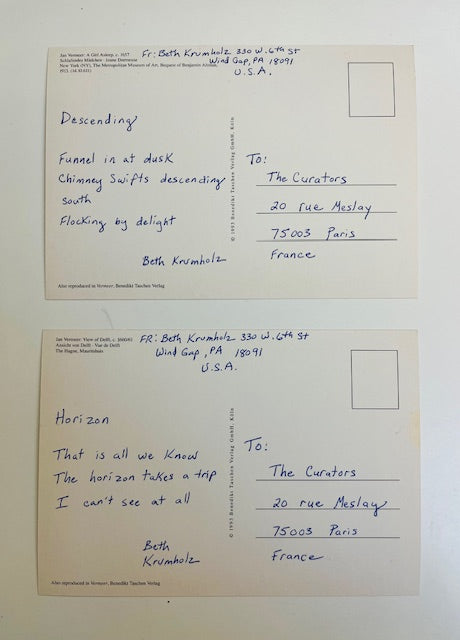 Jan Vermeer: A Girl Asleep, c. 1657
Schlafendes Mädchen · Jeune Dormeuse
New York (NY), The Metropolitan Museum of Art, Bequest of Benjamin Altman,
1913. (14.40.611)
Fr: Beth Krumholz 330 W. 6th St
Wind Gap, PA 18091
U.S.A.
Descending
Funnel in at dusk
Chimney Swifts descending
south
Flocking by delight
Beth Krumholz
Also reproduced in Vermeer, Benedikt Taschen Verlag
© 1993 Benedikt Taschen Verlag GmbH, Köln
To:
The Curators
20 rue Meslay
75003 Paris
France
Jan Vermeer: View of Delft, c. 1660/61
Ansicht von Delft · Vue de Delft
The Hague, Mauritshuis
FR: Beth Krumholz 330 W. 6th St
Wind Gap, PA 18091
U.S.A.
Horizon
That is all we know
The horizon takes a trip
I can't see at all
Beth
Krumholz
Also reproduced in Vermeer, Benedikt Taschen Verlag
© 1993 Benedikt Taschen Verlag GmbH, Köln
To:
The Curators
20 rue Meslay
75003 Paris
France